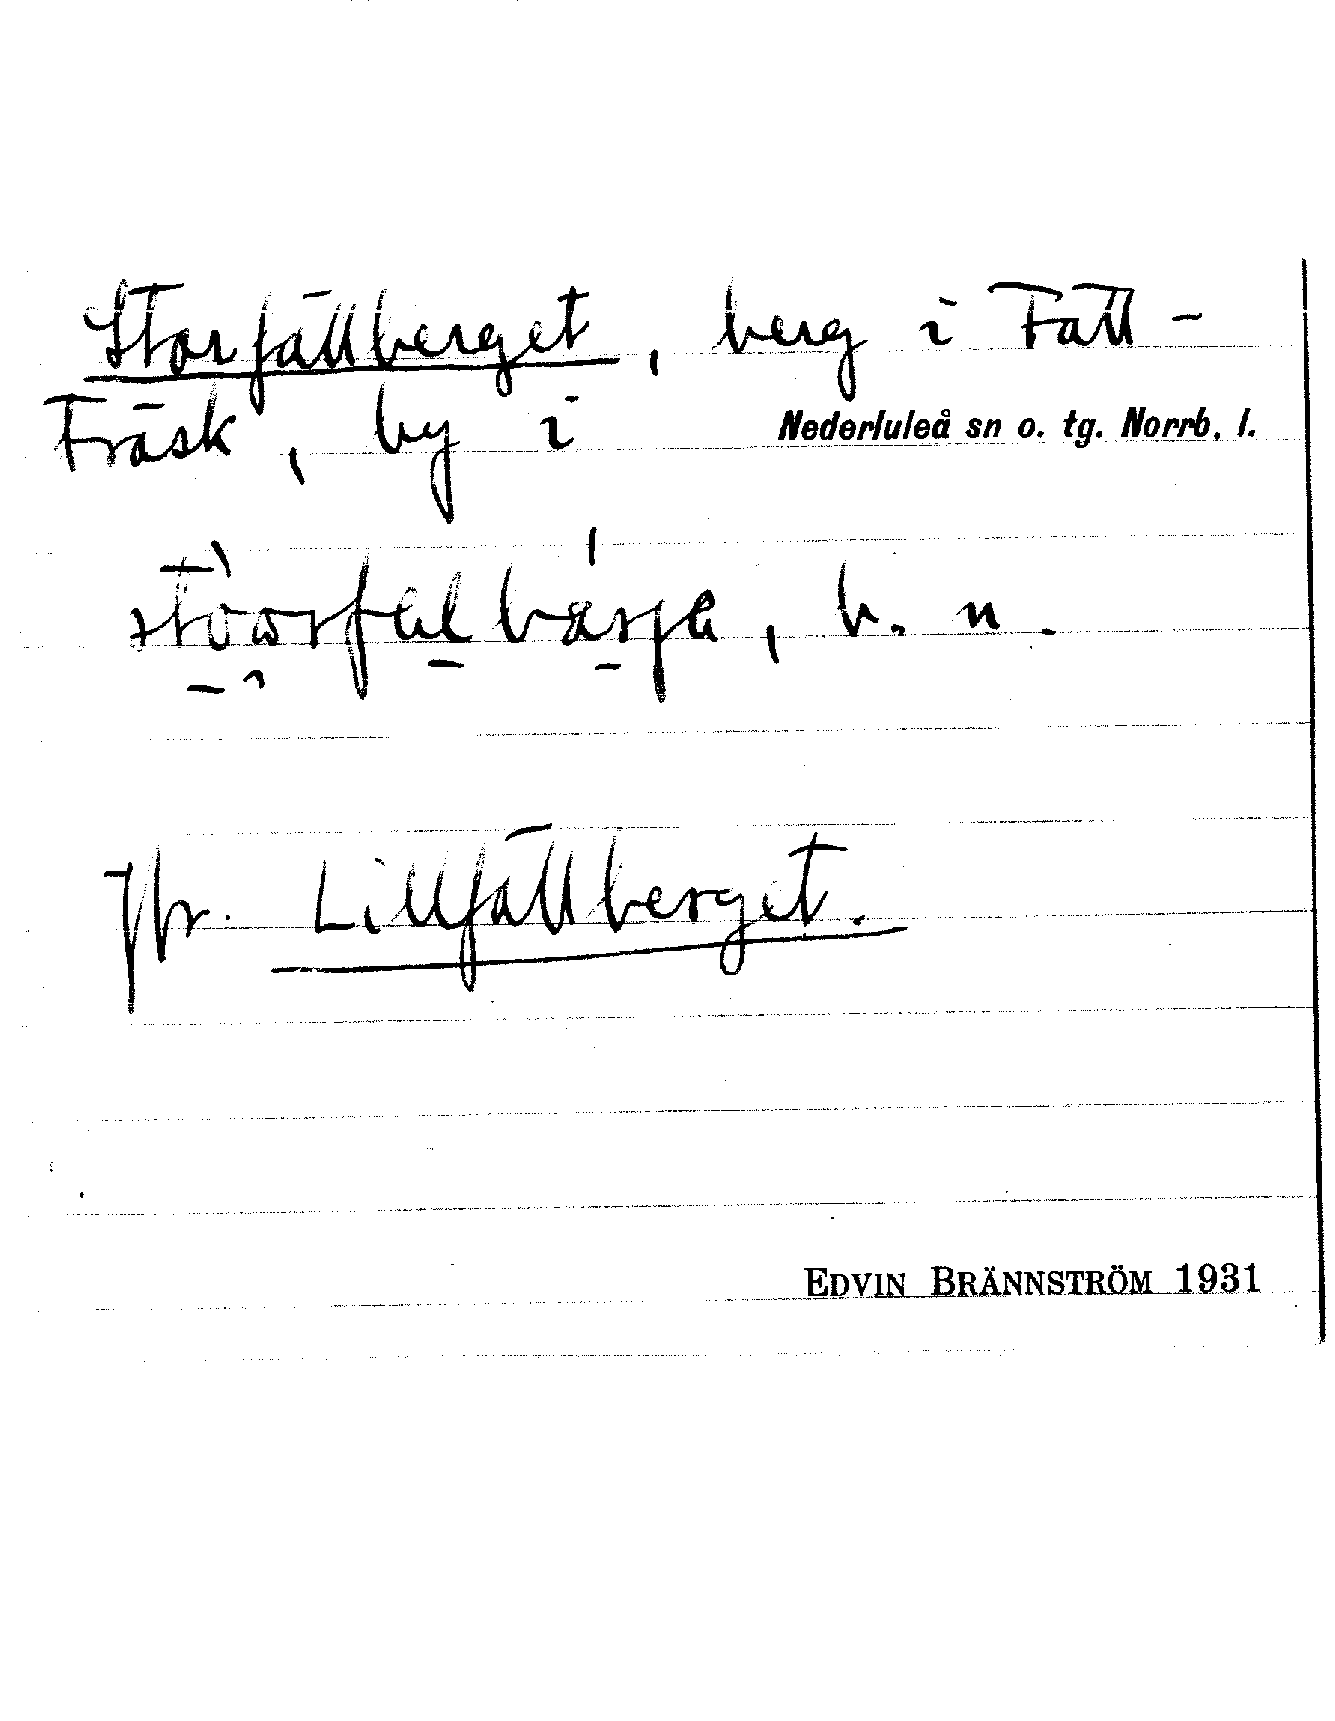 Storfällberget, berg i Fäll-
träsk, by i Nederluleå sn o. tg. Norrb. l.
b. n.
Jfr. Lillfällberget.
EDVIN BRÄNNSTRÖM 1931